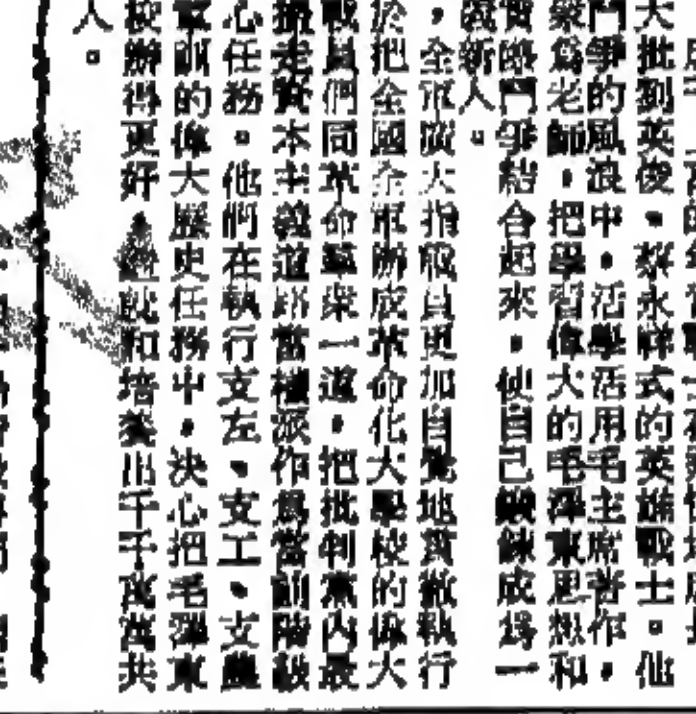 大批到英俊、蔡永祥式的英雄戰士。他
鬥爭的風浪中,活學活用毛主席著作,
衆爲老師,把學習偉大的毛澤東思想和
實際鬥爭結合起來,使自己鍛鍊成爲一
新人。
,全軍廣大指戰員更加自覺地貫徹執行
於把全國全軍辦成革命化大學校的偉大
戰員們同革命羣衆一道,把批判黨內最
走資本主義道路當權派作爲當前階級
心任務。他們在執行支左、支工、支農
軍訓的偉大歷史任務中,決心把毛澤東
校辦得更好,造就和培養出千千萬萬共
人。